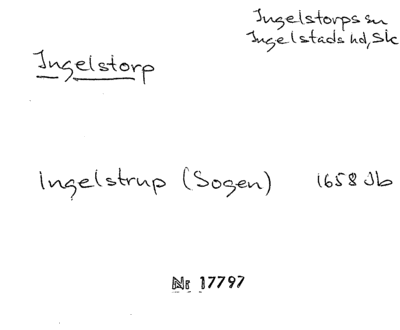 Ingelstorps sn
Ingelstads hd, Sk
Ingelstorp
Ingelstrup (Sogen) 1658 Jb
Nr 17797